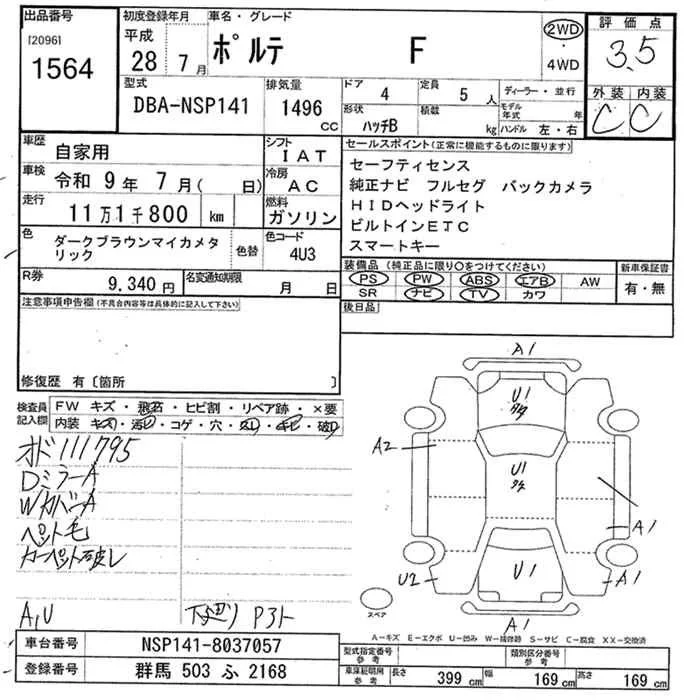 出品番号
[2096]
1564
初度登録年月
平成
28 7月
車名・グレード
ポルテ F
2WD
・
4WD
評価点
3.5
外装 内装
C C
型式
DBA-NSP141
排気量
1496
cc
ドア 4
定員 5 人
形状 ハッチB
積載 kg
ディーラー・並行
モデル年式 年
ハンドル 左・右
車歴
自家用
シフト
IAT
車検
令和 9年 7月( 日)
冷房
AC
走行
11万1千800 km
燃料
ガソリン
色
ダークブラウンマイカメタリック
色替
色コード
4U3
R券
9.340円
名変通知期限
月 日
セールスポイント(正常に機能するものに限ります)
セーフティセンス
純正ナビ フルセグ バックカメラ
HIDヘッドライト
ビルトインETC
スマートキー
装備品(純正品に限り○をつけてください)
PS PW ABS エアB AW
SR ナビ TV カワ
新車保証書
有・無
後日品
注意事項申告欄(不具合内容等は具体的に記入して下さい)
修復歴 有〔箇所 〕
検査員記入欄
FW キズ・飛石・ヒビ割・リペア跡・×要
内装 キズ・汚レ・コゲ・穴・スレ・キビ・破レ
オド111795
DミラーA
WカバーA
ペット毛
カーペット破レ
A,U
下廻り
A1
U1
A2
U1
A1
U2
U1
A1
A1
スペア
A−キズ E−エクボ U−凹み W−補修跡 S−サビ C−腐食 XX−交換済
車台番号
NSP141-8037057
登録番号
群馬 503 ふ 2168
型式指定番号
参考
類別区分番号
参考
車庫証明用
参考
長さ 399 cm
幅 169 cm
高さ 169 cm